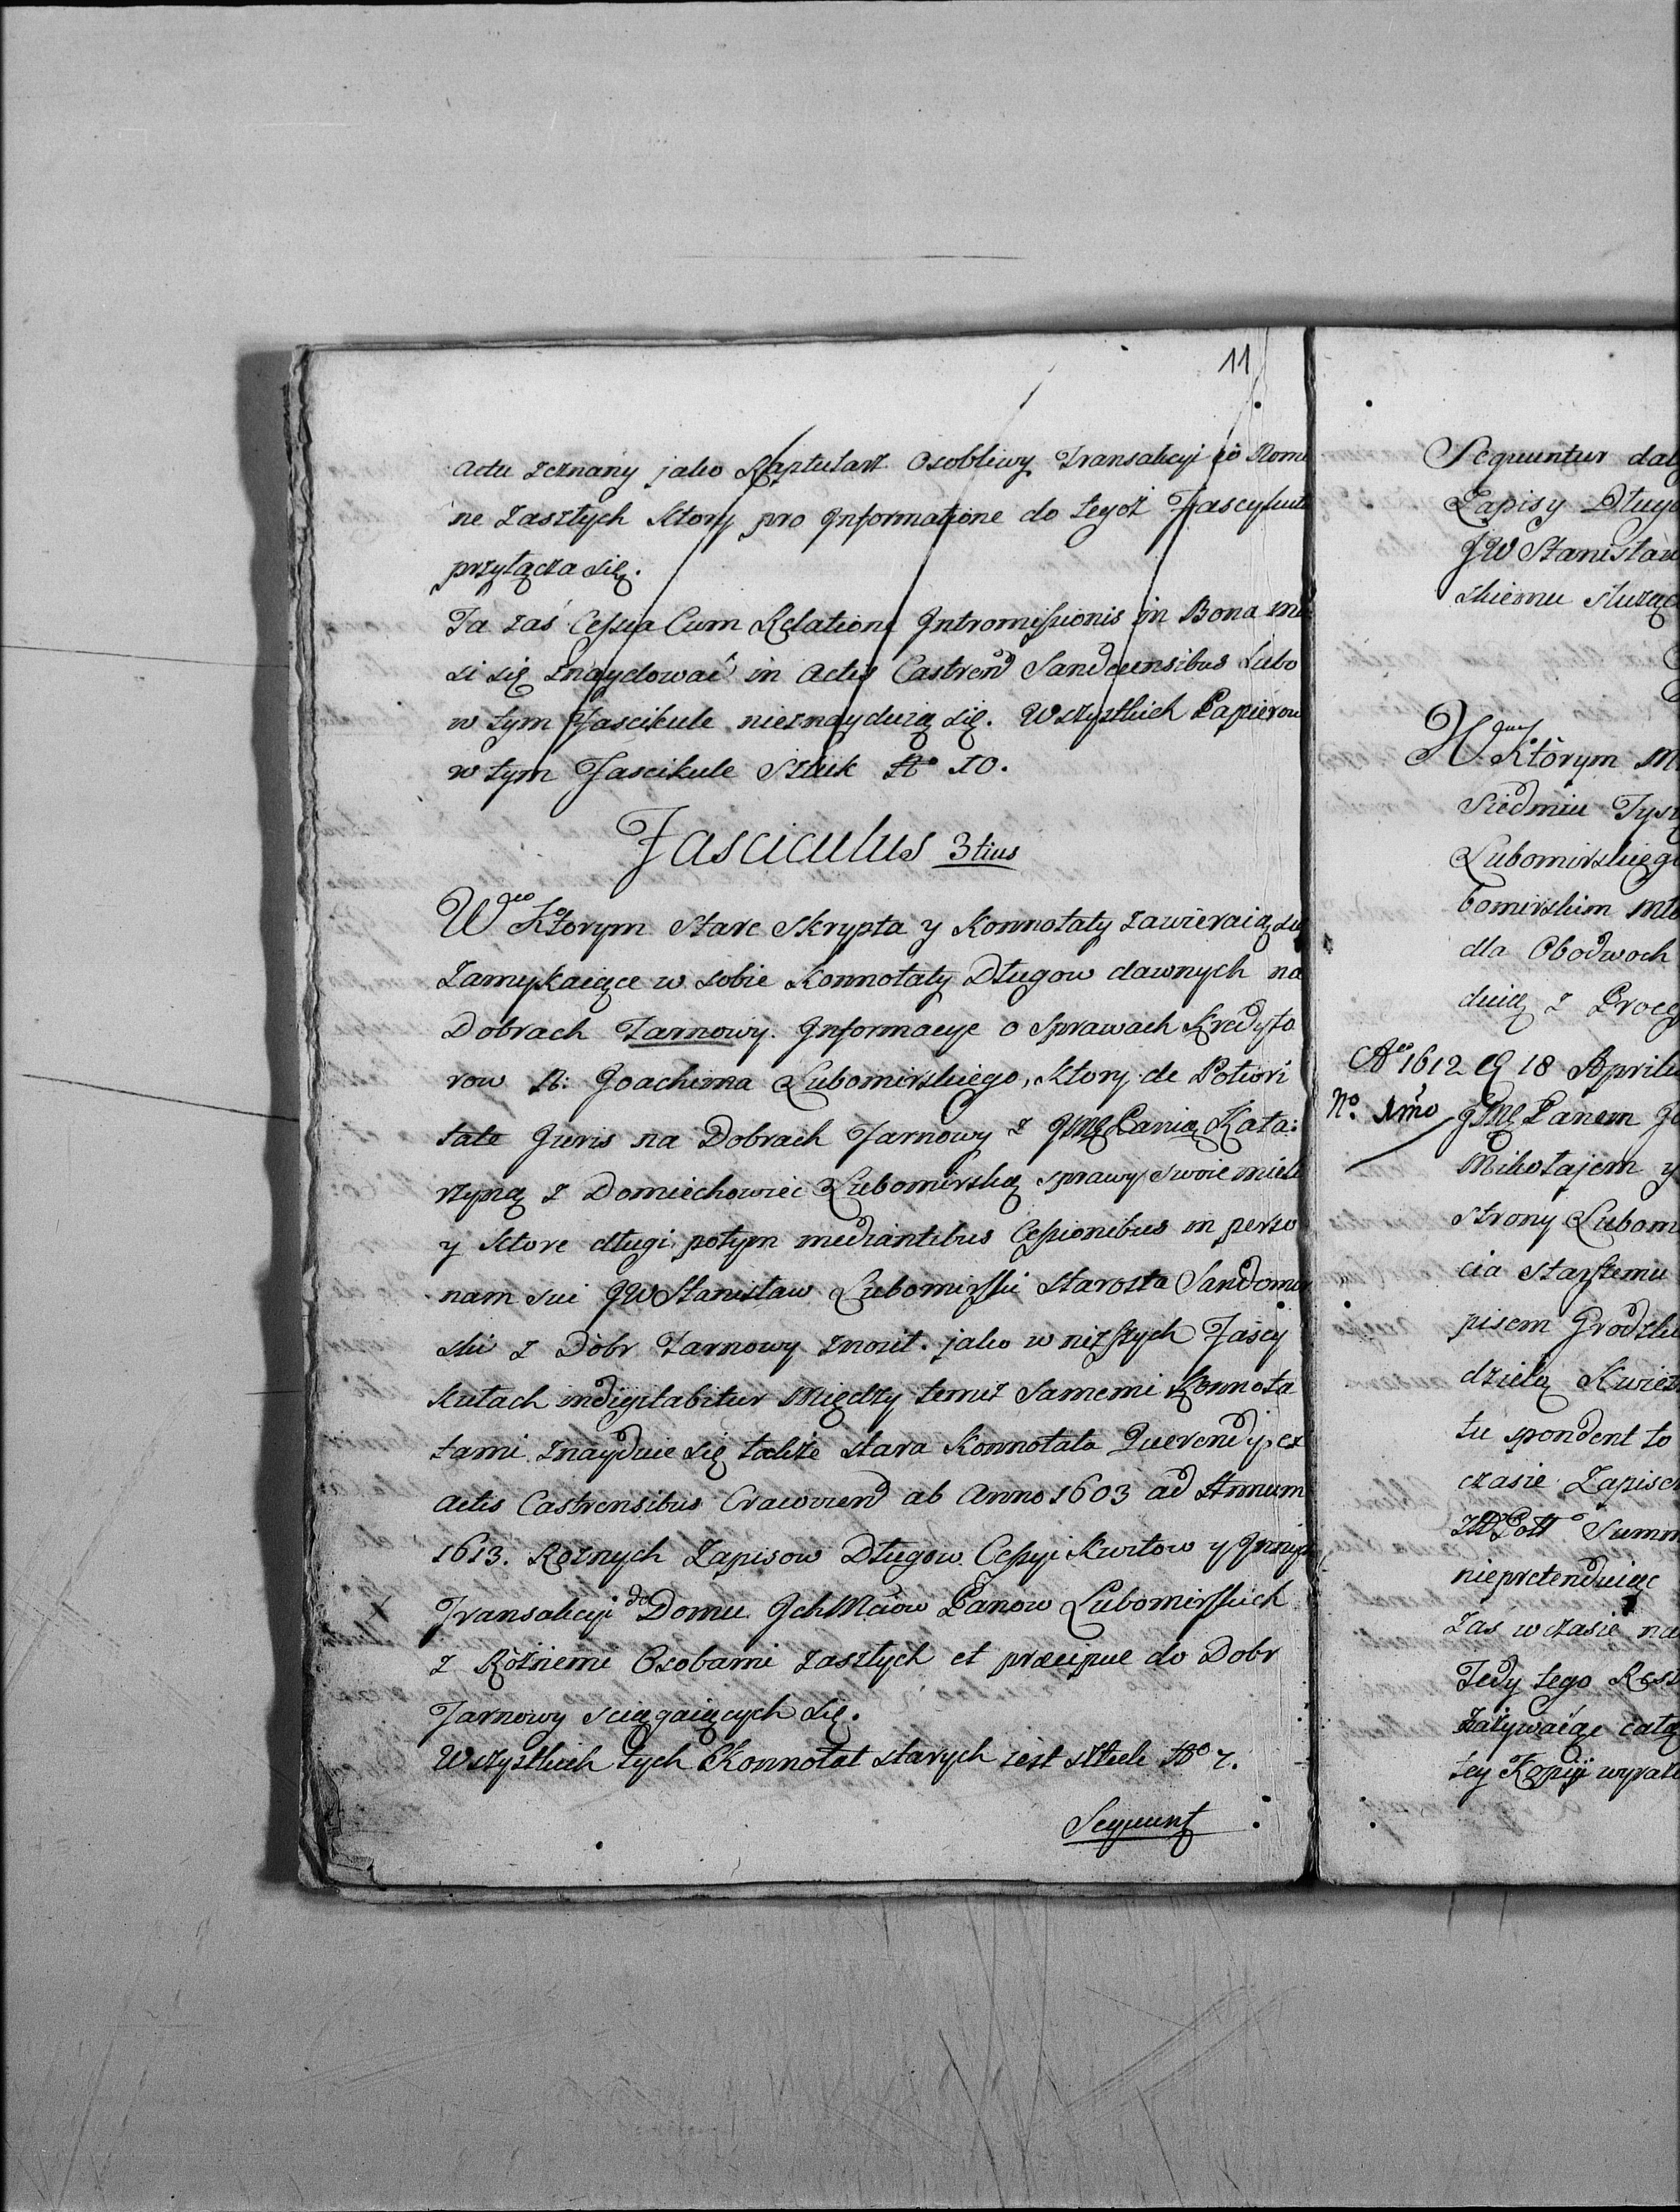 11
actu zeznany jako Raptularz Osobliwy Transakcyi eò Nomi
ne Zaszłych ktory pro Informatione do tegoż Fascykułu
przyłącza się.
Ta zaś Cessia Cum Relatione Intromissionis in Bona mu
si się znaydować in Actis Castren̄ Sandecensibus Lubo
w tym Fascikule nieznayduią się. Wszystkich Papierow
w tym Fascikule Sztuk No 10.
Fasciculus 3tius
W Ktorym Stare Skrypta y Konnotaty zawieraią się
Zamykaiące w sobie Konnotaty Długow dawnych na
Dobrach Jarnowy. Informacye o Sprawach Kredyto
row Joachima Lubomirskiego, ktory de Potiori
tate Juris na Dobrach Jarnowy z JMę Panią Kata:
rzyną z Domiechowiec Lubomirską sprawy swoie mieli
y ktore długi potym mediantibus Cessionibus in perso
nam sui JW Stanisław Lubomirski Starosta Sandomir
ski z Dobr Jarnowy znosił. jako w niższych Fascy
kułach indigitabitur Między temiż Samemi Konnota
tami znayduie się także stara Konnotata Querendy ex
actis Castrensibus Cracovien̄ ab Anno 1603 ad Annum
1613. Roznych Zapisow Długow Cessyi Kwitow y Innych
Transakcyi do Domu IchMciow Panow Lubomirskich
z Różnemi Osobami zaszłych et præcipue do Dobr
Jarnowy sciągaiących się.
Wszystkich tych Konnotat starych iest sztuk No 7.
Sequunt
Sequuntur
Zapisy Długo
JW Stanisław
skiemu służąc
W Ktòrym
Siedmiu Tysi
Lubomirskiego
bomirskim
dla Obodwoch
duią z Proce
Ao 1612 18 Aprilis
No 1mo JMę Panem
Mikołajem y
Strony Lubom
cia starszemu
pisem Grodzki
dzielą Kwiet
tu spondent to
czasie Zapisem
Summ
niepretenduiąc
zas w czasie na
Tedy tego Rest
zażywaiąc całą
tey Kopiji wyraż